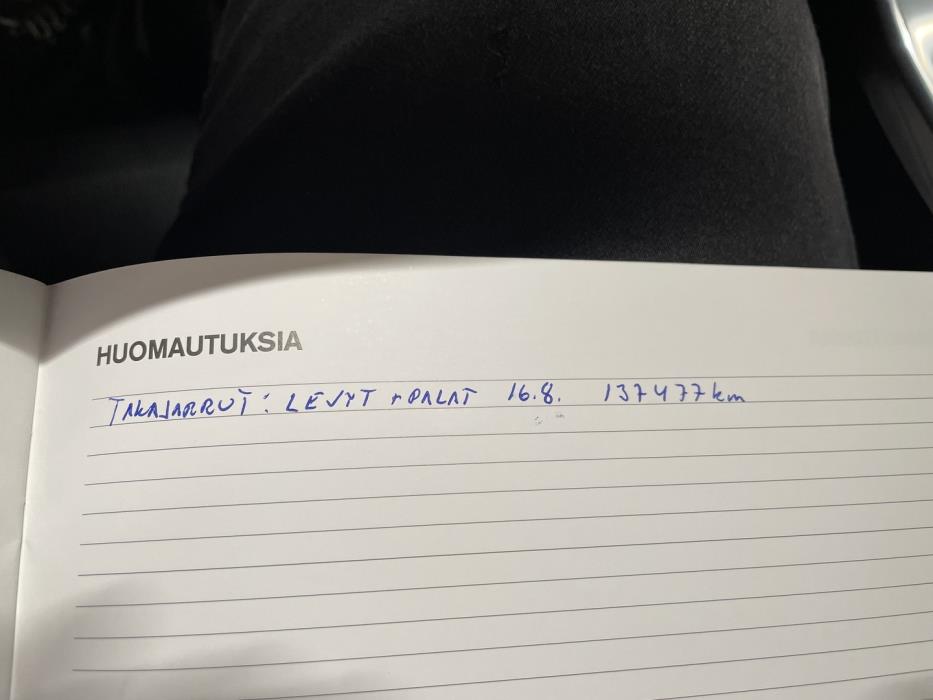 HUOMAUTUKSIA
TAKAJARRUT: LEVYT + PALAT 16.8. 137477km